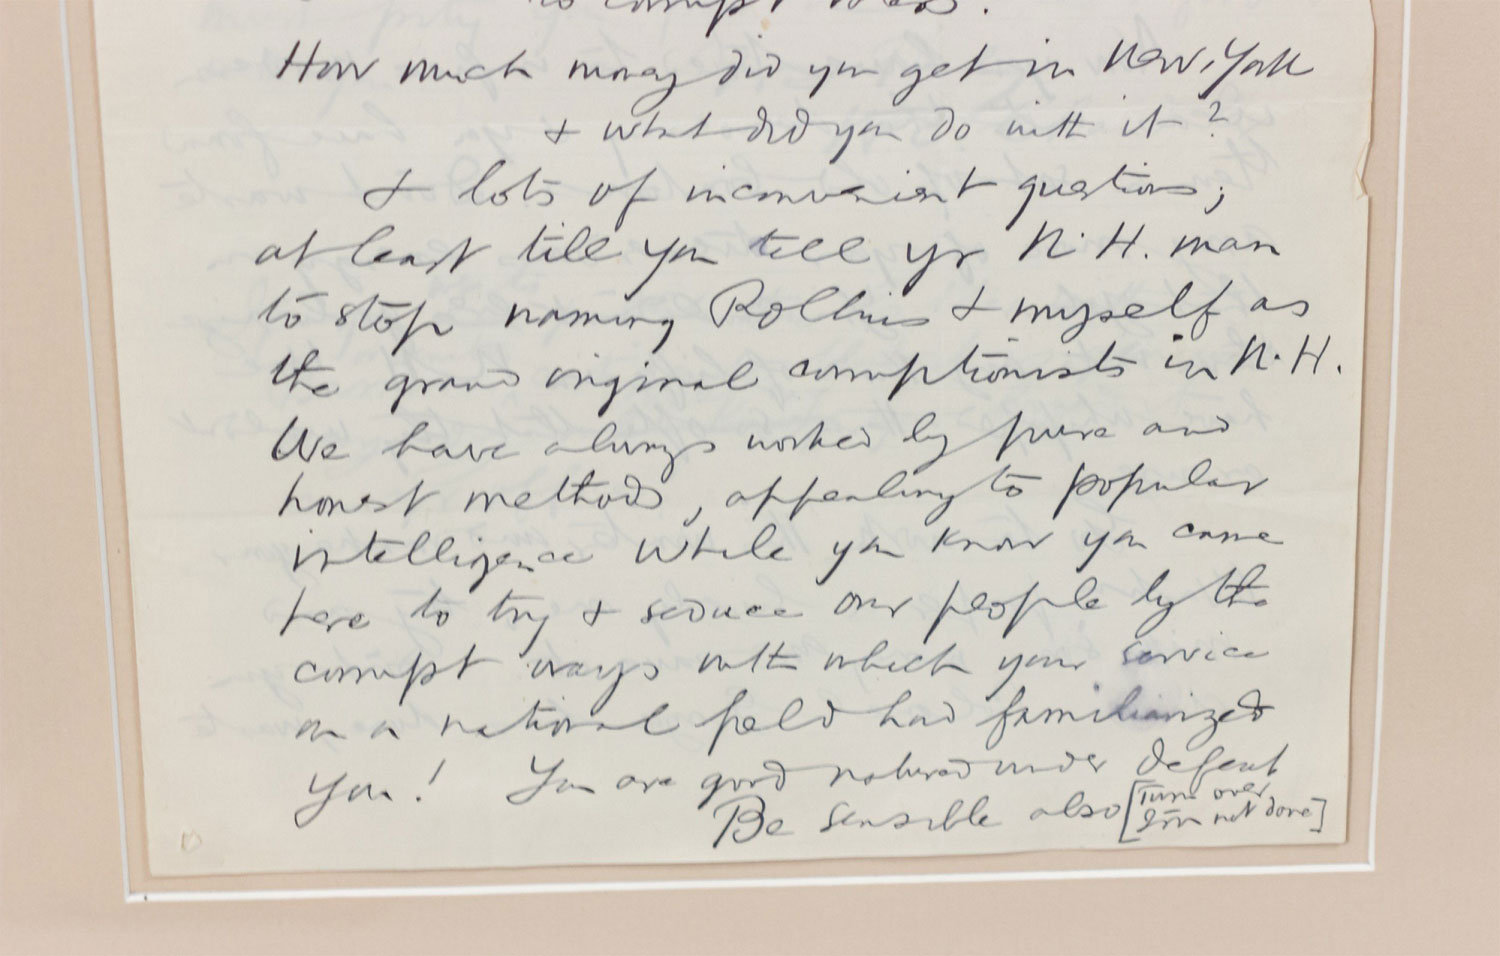 to corrupt voters.
How much money did you get in New York
& what did you do with it?
& lots of inconvenient questions;
at least till you tell yr N.H. man
to stop naming Rollins & myself as
the grand original corruptionists in N.H.
We have always worked by pure and
honest methods, appealing to popular
intelligence While you know you came
here to try & seduce our people by the
corrupt ways with which your service
on a national field had familiarized
you! You are good natured under defeat
Be sensible also [Turn over
I'm not done]